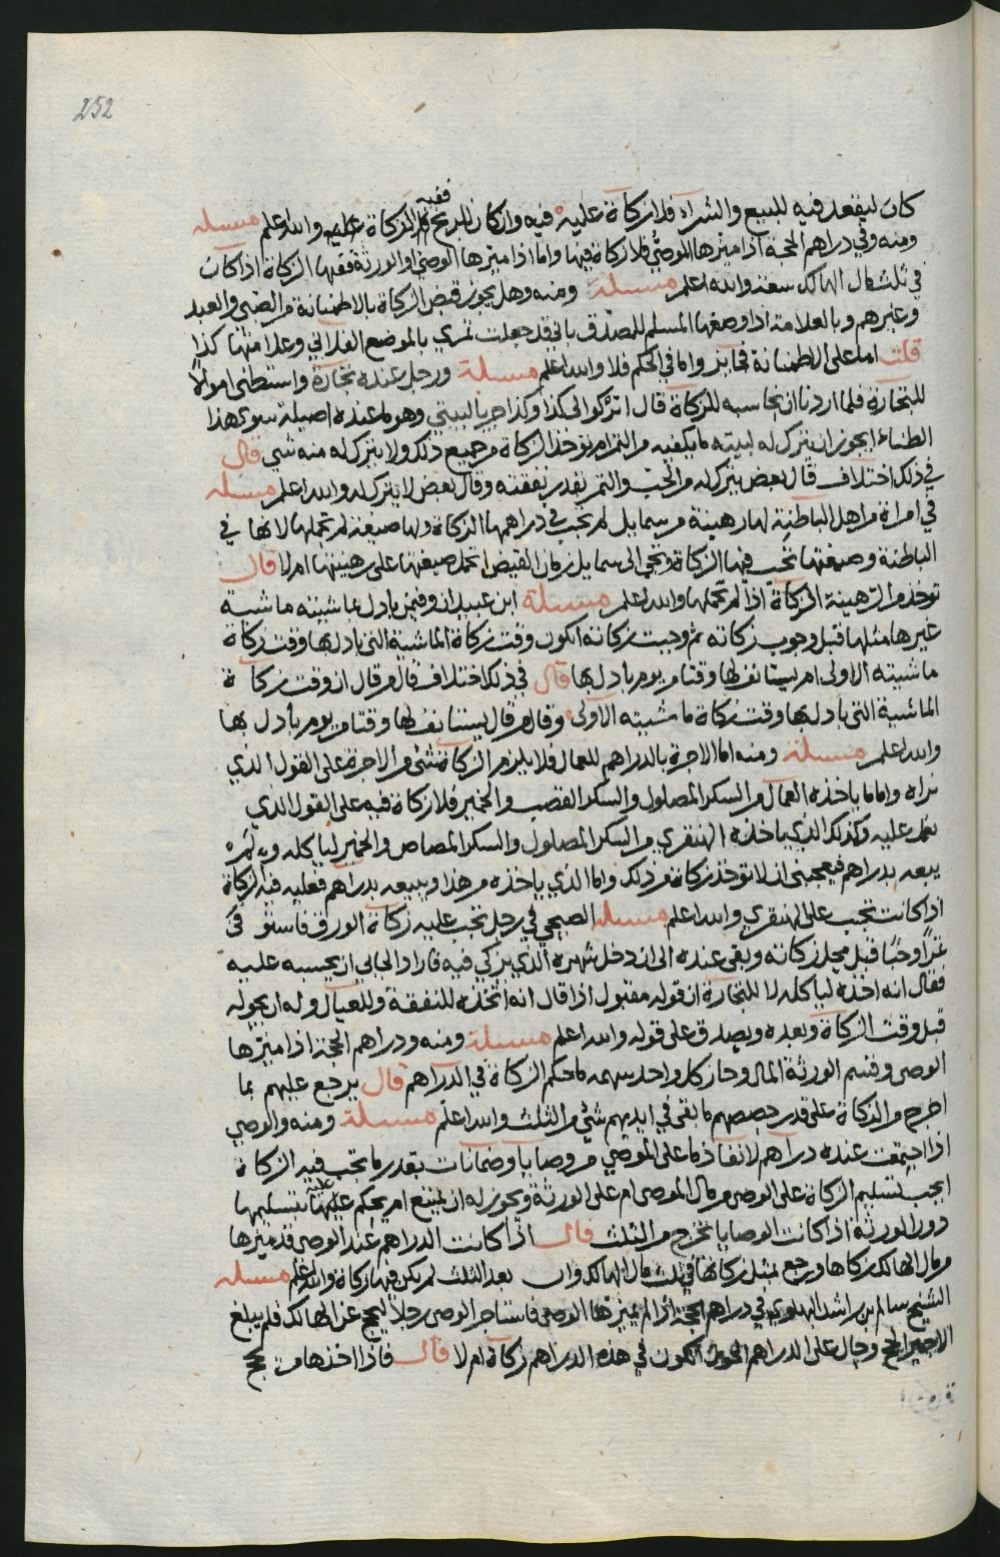 252
كان ليقعد فيه للبيع والشراء فلا زكاة عليه فيه وان كان للربح ففيه الزكاة والله اعلم مسئلة
ومنه وفي دراهم الحجة اذا ميزها الموصي فلا زكاة فيها واما اذا ميزها الوصي او الورثة ففيها الزكاة اذا كان
في ثلث مال الهالك سعة والله اعلم مسئلة ومنه وهل يجوز قبض الزكاة بالاطمئنانة من الصبي والعبد
وغيرهم وبالعلامة اذا وصفها المسلم للمصدق باني قد جعلت تمري بالموضع الفلاني وعلامتها كذا
قلت اما على الاطمئنانة فجايز واما في الحكم فلا والله اعلم مسئلة ورجل عنده تجارة واستطنى اموالا
للتجارة فلما اردنا ان نحاسبه للزكاة قال اتركوا لي كذا وكذا جريا لبيتي وهو له عنده اصيلة سوى هذا
الطناء ايجوز ان يترك له لبيته ما يكفيه من التمر ام تؤخذ الزكاة من جميع ذلك ولا يترك له منه شي قال
في ذلك اختلاف قال بعض يترك له من الحب والتمر بقدر نفقته وقال بعض لا يترك له والله اعلم مسئلة
في امراة من اهل الباطنة لها رهينة من سمايل لم تجب في دراهمها الزكاة ولها صيغة لم تحملها لانها في
الباطنة وصيغتها تجب فيها الزكاة وتجي الى سمايل زمان القيض اتحمل صيغتها على رهينتها ام لا قال
تؤخذ من الرهينة الزكاة اذا لم تحملها والله اعلم مسئلة ابن عبيدان وفيمن بادل بماشيته ماشية
غيرها مثلها قبل وجوب زكاته ثم وجبت زكاته ايكون وقت زكاة الماشية التي بادل بها وقت زكاة
ماشيته الاولى ام يستانف لها وقتا من يوم بادل بها قال في ذلك اختلاف قال من قال ان وقت زكاة
الماشية التي بادل بها وقت زكاة ماشيته الاولى وقال من قال يستانف لها وقتا من يوم بادل بها
والله اعلم مسئلة ومنه اما الاجرة بالدراهم للعمال فلا يلزم الزكاة شي من الاجرة على القول الذي
نراه واما ما ياخذه العمال من السكر المصلول والسكر القصب والخمير فلا زكاة فيه على القول الذي
نعمل عليه وكذلك الذي ياخذه الهنقري من السكر المصلول والسكر المصاص والخمير لياكله
يبعه بدراهم فيعجبني ان لا تؤخذ زكاة من ذلك واما الذي ياخذه من هذا ويبيعه بدراهم فعليه فيه الزكاة
اذا كانت تجب على الهنقري والله اعلم مسئلة الصبحي في رجل تجب عليه زكاة الورق فاستوفى
وحبا قبل محل زكاته وبقي عنده الى ان دخل شهره الذي يزكي فيه فاراد الجابي ان يحسبه عليه
فقال انه اخذه لياكله لا للتجارة ان قوله مقبول اذا قال انه اتخذه للنفقة وللعيال وله ان يحوله
قبل وقت الزكاة وبعده ويصدق على قوله والله اعلم مسئلة ومنه ودراهم الحجة اذا ميزها
الوصي وقسم الورثة المال وحاز كل واحد سهمه ما حكم الزكاة في الدراهم قال يرجع عليهم بما
اخرج من الزكاة على قدر حصصهم ما بقي في ايديهم شي من الثلث والله اعلم مسئلة ومنه والوصي
اذا اجتمعت عنده دراهم لانفاذ ما على الموصي من وصايا وضمانات بقدر ما تجب فيه الزكاة
ايجب تسليم الزكاة على الوصي من مال الموصي ام على الورثة ويجوز له ان يمتنع ام يحكم عليه بتسليمها
دون الورثة اذا كانت الوصايا تخرج من الثلث قال اذا كانت الدراهم عند الوصي قد ميزها
من مال الهالك زكاها ورجع بمثل زكاتها في ثلث مال الهالك وان بعد الثلث لم يكن فيها زكاة والله اعلم مسئلة
الشيخ سالم بن راشد البهلوي في دراهم الحجة اذا لم يميزها الوصي فاستاجر الوصي رجلا ليحج عن الهالك فلم يبلغ
الاجير الحج وحال على الدراهم الحول ايكون في هذه الدراهم زكاة ام لا قال فاذا اخذها من يحج